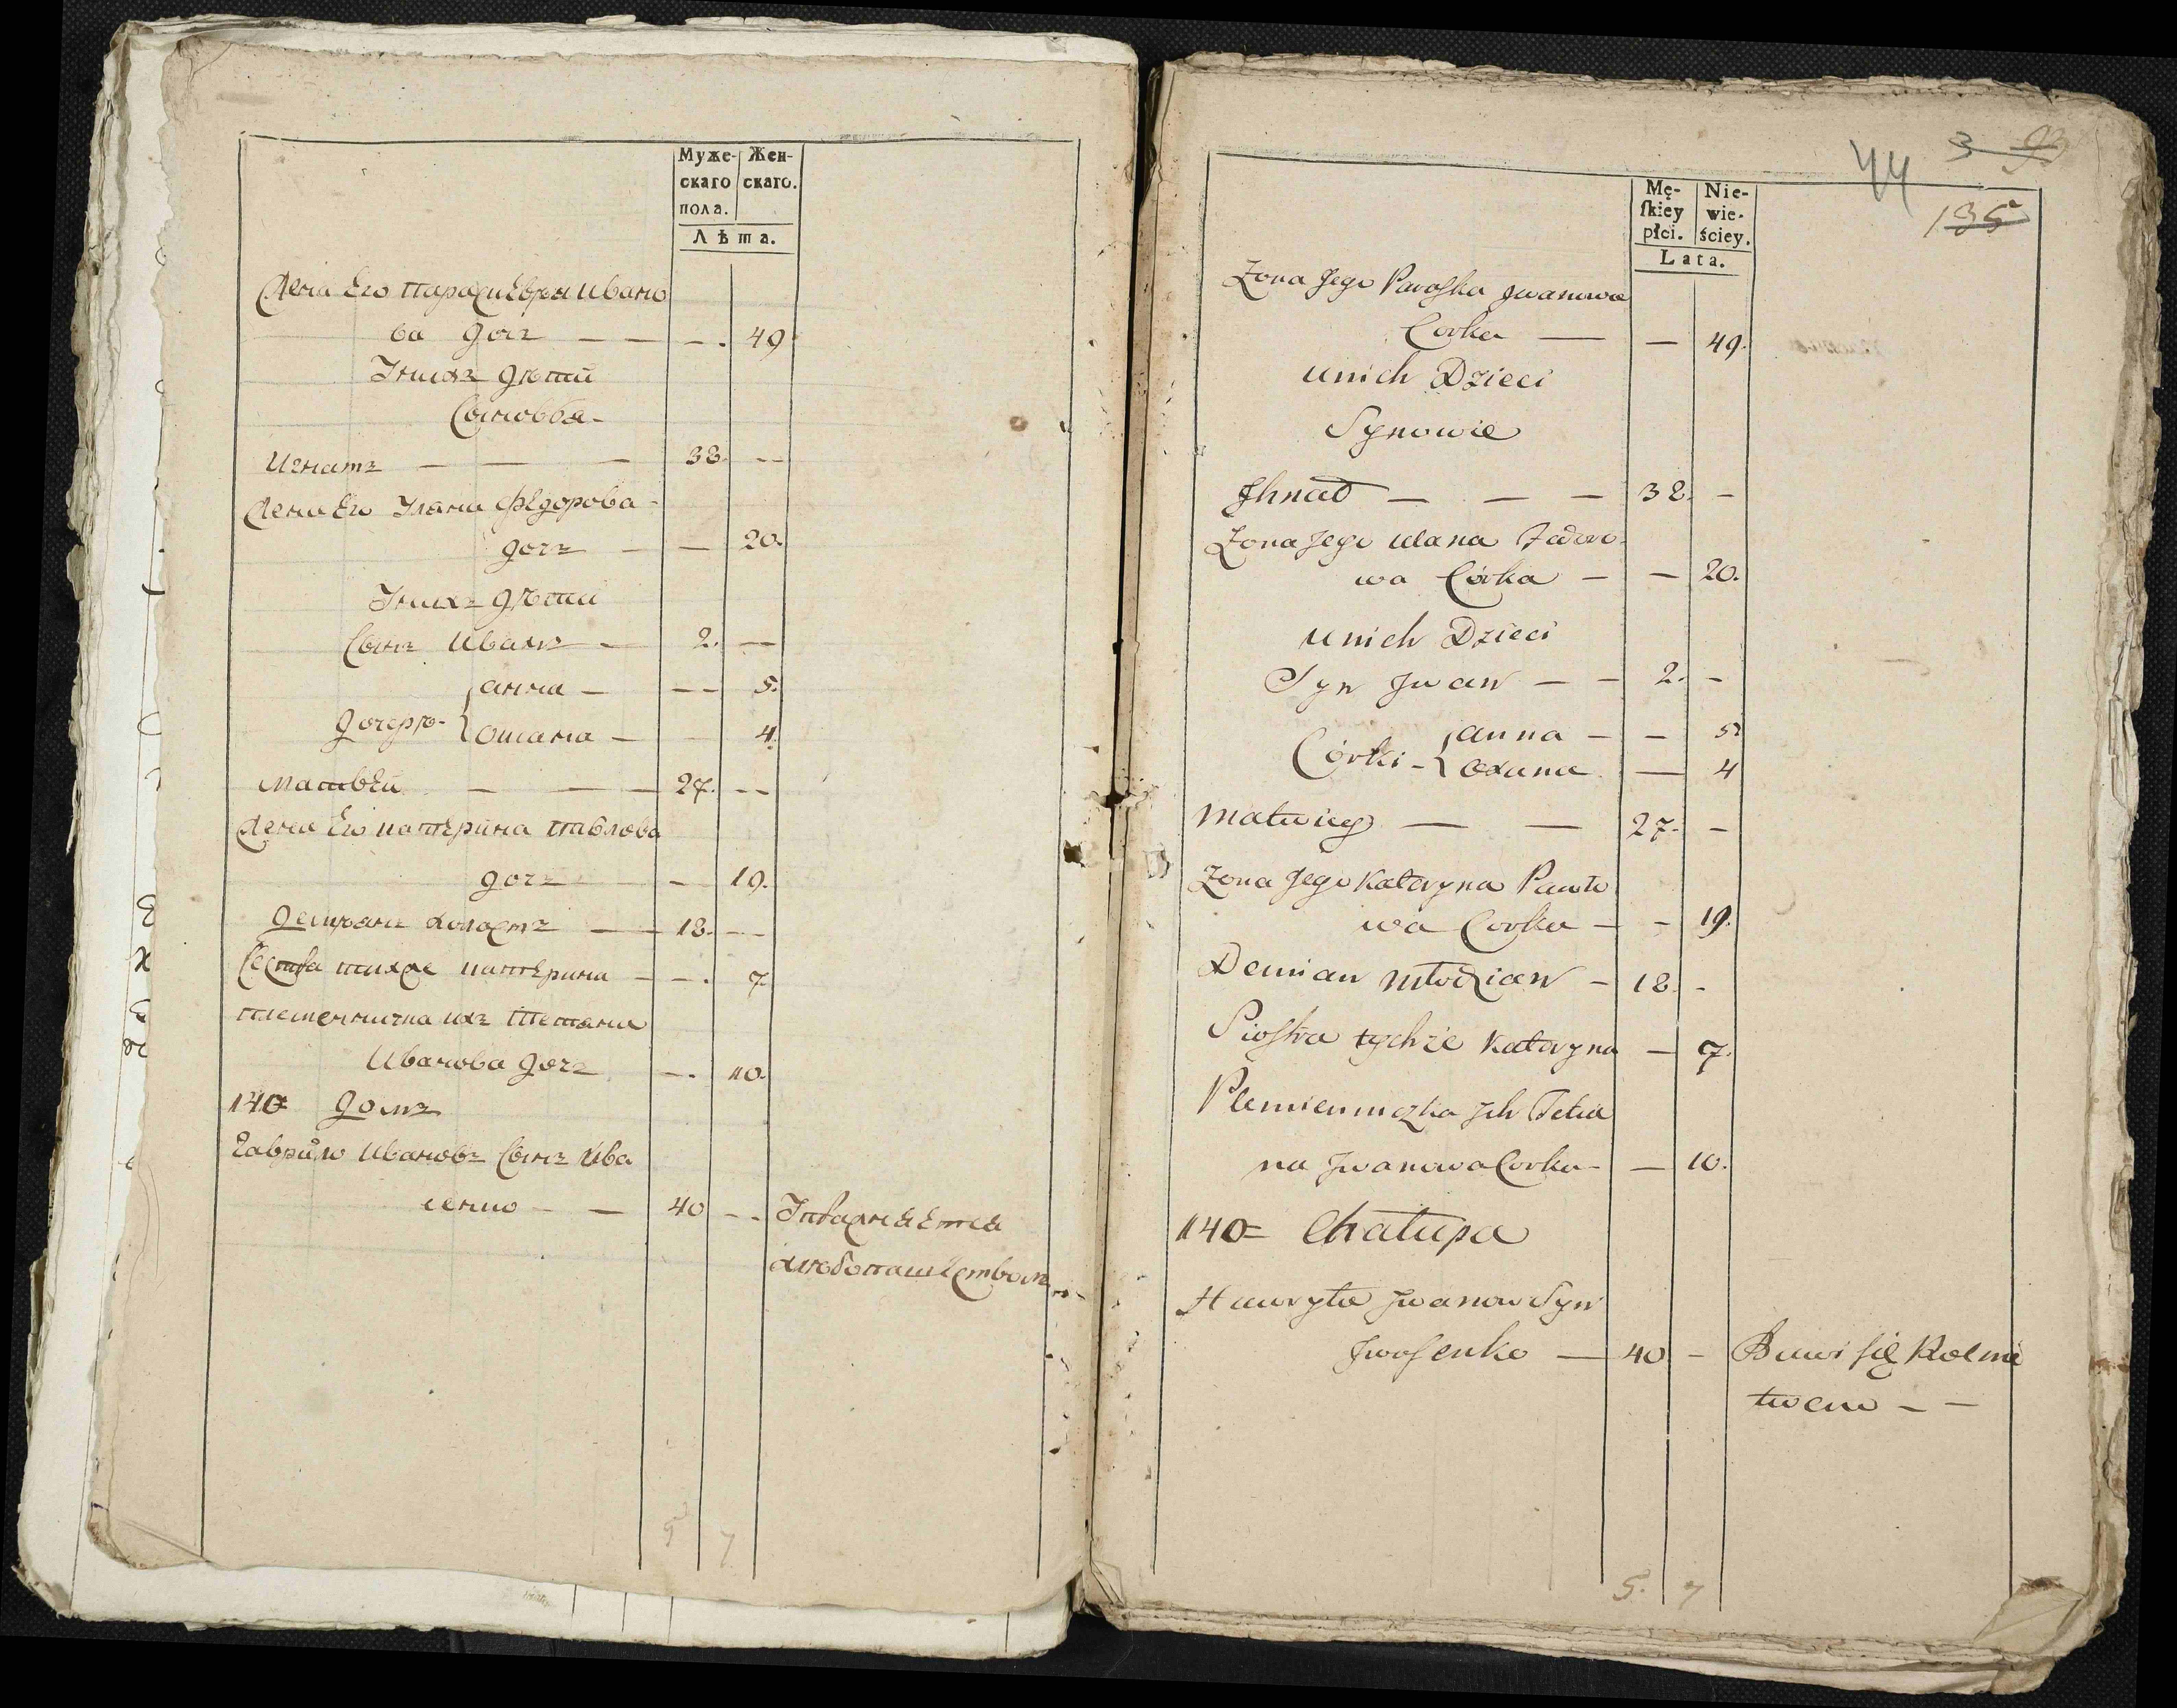 Муже- Жен-
скаго скаго.
пола.
Лѣта.
Жена Его параскЕвья ивано
ва дочь — — — 49
Унихъ дѣти
Сыновья
Игнатъ — — — 38. —
Жена Его Уляна фЕдорова
дочь — — 20.
Унихъ дѣти
Сынъ Иванъ — 2. —
анна — — 5.
дочерѣ
оксана — — 4.
МатвЕй — — 27. —
Жена Его катЕрина павлова
дочь — — 19.
демьянъ холостъ — 18. —
Сестра тихже катЕрина — — 7
племенничка ихъ Тетяна
Иванова дочь — 10.
140 = домъ
Гаврило Ивановъ Сынъ Ива
сенко — — 40 — УпражняЕтся
хлѣбопашЕством
5 7
44 3 93
135
Mę- Nie-
ſkiey wie-
płci. ściey.
Lata.
Zona Jego Paraſka Jwanowa
Corka — — 49.
unich Dzieci
Synowie
Jhnat — — — 38. —
Zona Jego Ulana Fedoro-
wa Córka — — 20.
unich Dzieci
Syn Jwan — — 2. —
anna — — 5
Córki
Oxana — 4
Matwiey — — 27. —
Zona Jego Kataryna Pawło
wa Corka — — 19.
Demian młodzian — 18. -
Siostra tychże Kataryna — 7.
Plemienniczka Jch Tetia
na Jwanowa Corka — — 10.
140 = Chałupa
Hawryło Jwanow Syn
Jwaſenko — 40 — Bawi ſię Rolnic
twem — —
5. 7